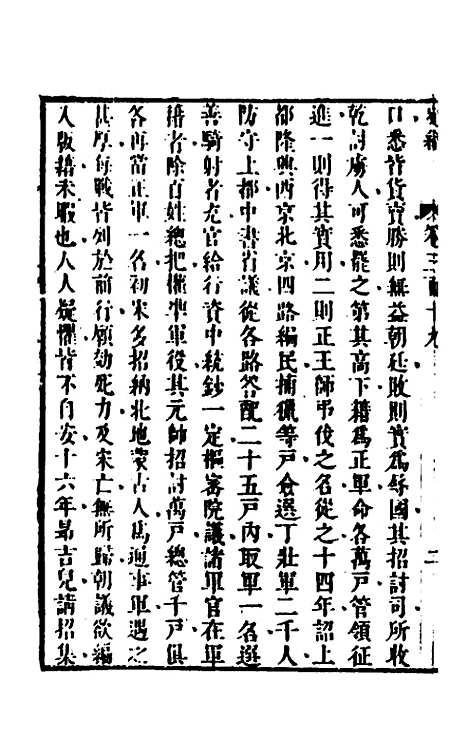 口悉皆貨寶勝則無益朝廷敗則實爲辱國其招討司所收
乾討虜人可悉罷之第其高下籍爲正軍命各萬戸管領征
進一則得其實用二則正王師弔伐之名從之十四年詔上
都隆興西京北京四路編民捕獵等戸僉選丁壯軍二千人
防守上都中書省議從各路荅配二十五戸内取軍一名選
善騎射者充官給行資中統鈔一定樞審院議諸軍官在軍
籍者除百姓總把權準軍役其元帥招討萬戸總管千戸俱
各再當正軍一名初宋多招納北地蒙古人爲通事軍遇之
甚厚每戰皆列於前行願効死力及宋亡無所歸朝議欲編
入版籍未暇也人人疑懼皆不自安十六年昻吉兒請招集